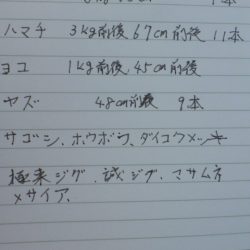 ハマチ 3kg前後 67cm前後 11本
ヨコ 1kg前後、45cm前後
ヤズ 48cm前後 9本
サゴシ、ホウボウ、ダイコウメッキ
極来ジグ、誠ジグ、マサムネ
メサイア、